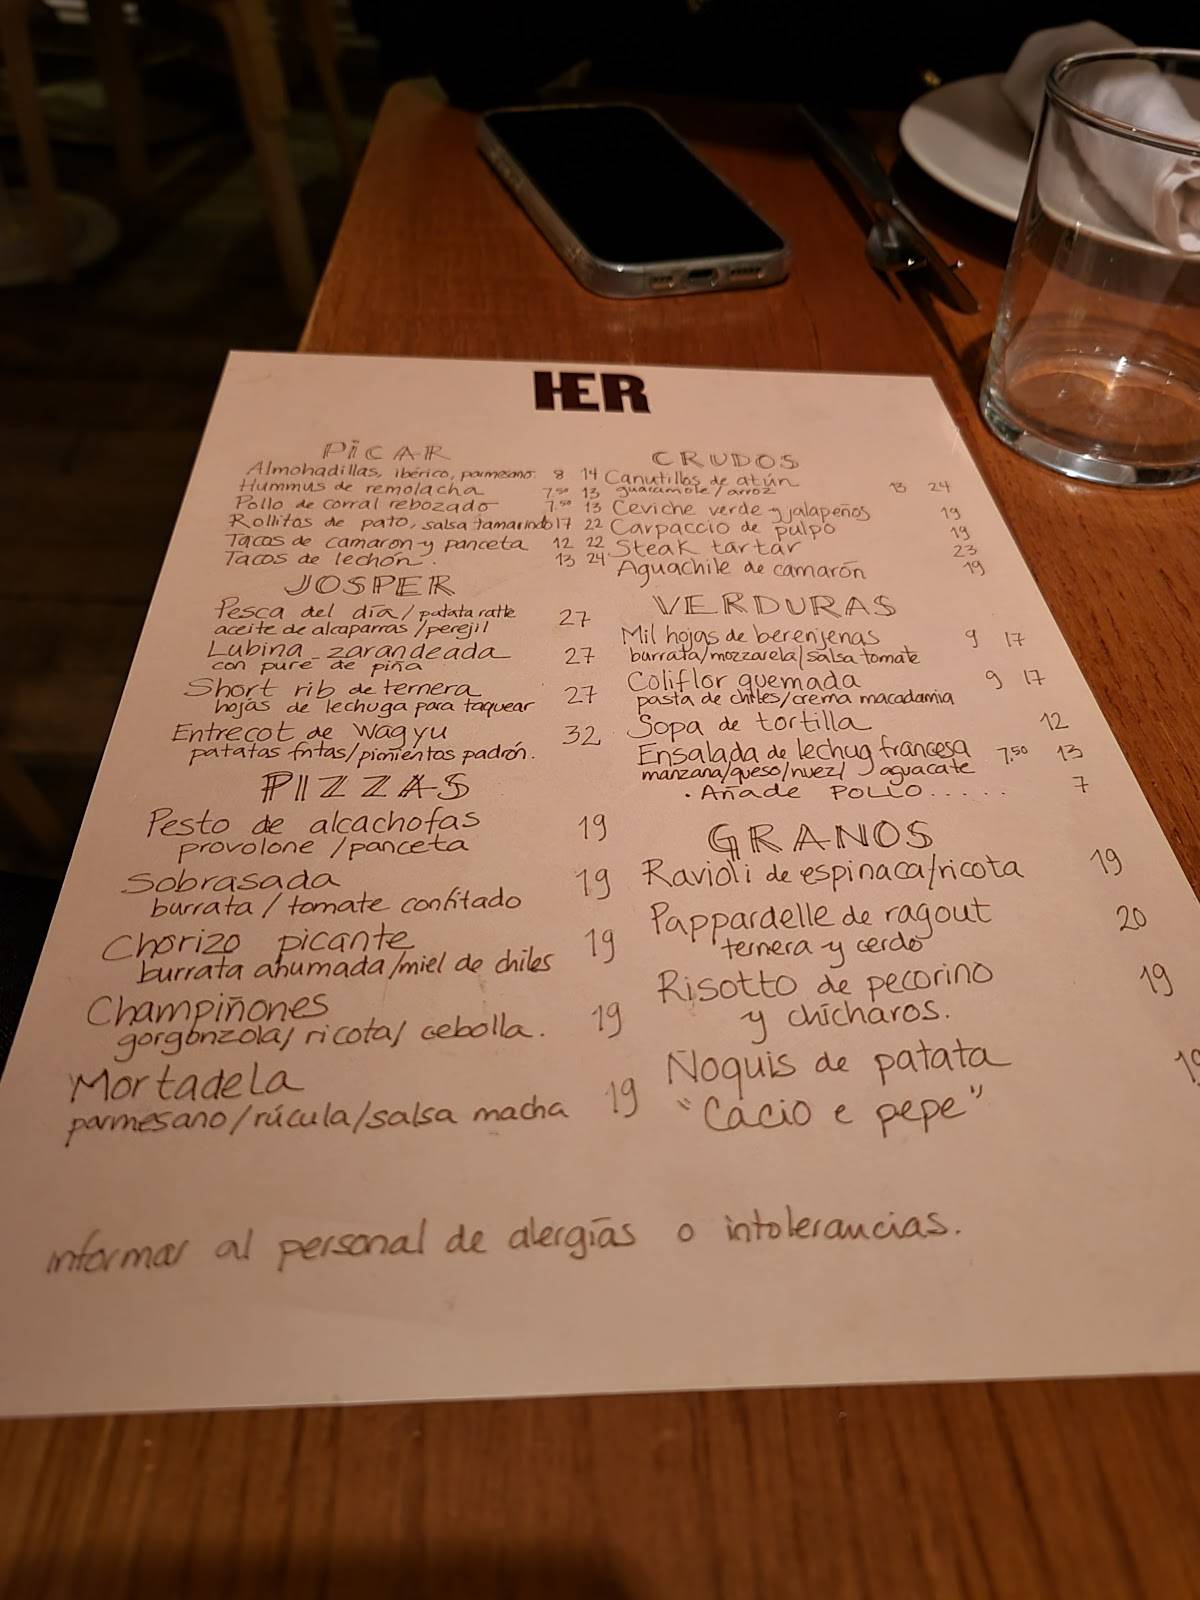 HER
PiCAR
Almohadillas, ibérico, parmesano. 8 14
Hummus de remolacha 7.50 13
Pollo de corral rebozado 7.50 13
Rollitos de pato, salsa tamarindo 17 22
Tacos de camarón y panceta 12 22
Tacos de lechón. 13 24
JOSPER
Pesca del día / patata ratte 27
aceite de alcaparras / perejil
Lubina zarandeada 27
con puré de piña
Short rib de ternera 27
hojas de lechuga para taquear
Entrecot de Wagyu 32
patatas fritas/pimientos padrón.
PIZZAS
Pesto de alcachofas 19
provolone / panceta
Sobrasada 19
burrata / tomate confitado
Chorizo picante 19
burrata ahumada/miel de chiles
Champiñones 19
gorgonzola/ ricota/ cebolla.
Mortadela 19
parmesano/rúcula/salsa macha
CRUDOS
Canutillos de atún 13 24
guacamole / arroz
Ceviche verde y jalapeños 19
Carpaccio de pulpo 19
Steak tartar 23
Aguachile de camarón 19
VERDURAS
Mil hojas de berenjenas 9 17
burrata/mozzarela/salsa tomate
Coliflor quemada 9 17
pasta de chiles/crema macadamia
Sopa de tortilla 12
Ensalada de lechug francesa 7.50 13
manzana/queso/nuez/ aguacate
· Añade POLLO..... 7
GRANOS
Ravioli de espinaca/ricota 19
Pappardelle de ragout 20
ternera y cerdo
Risotto de pecorino 19
y chícharos.
Ñoquis de patata 19
"Cacio e pepe"
informar al personal de alergías o intolerancias.